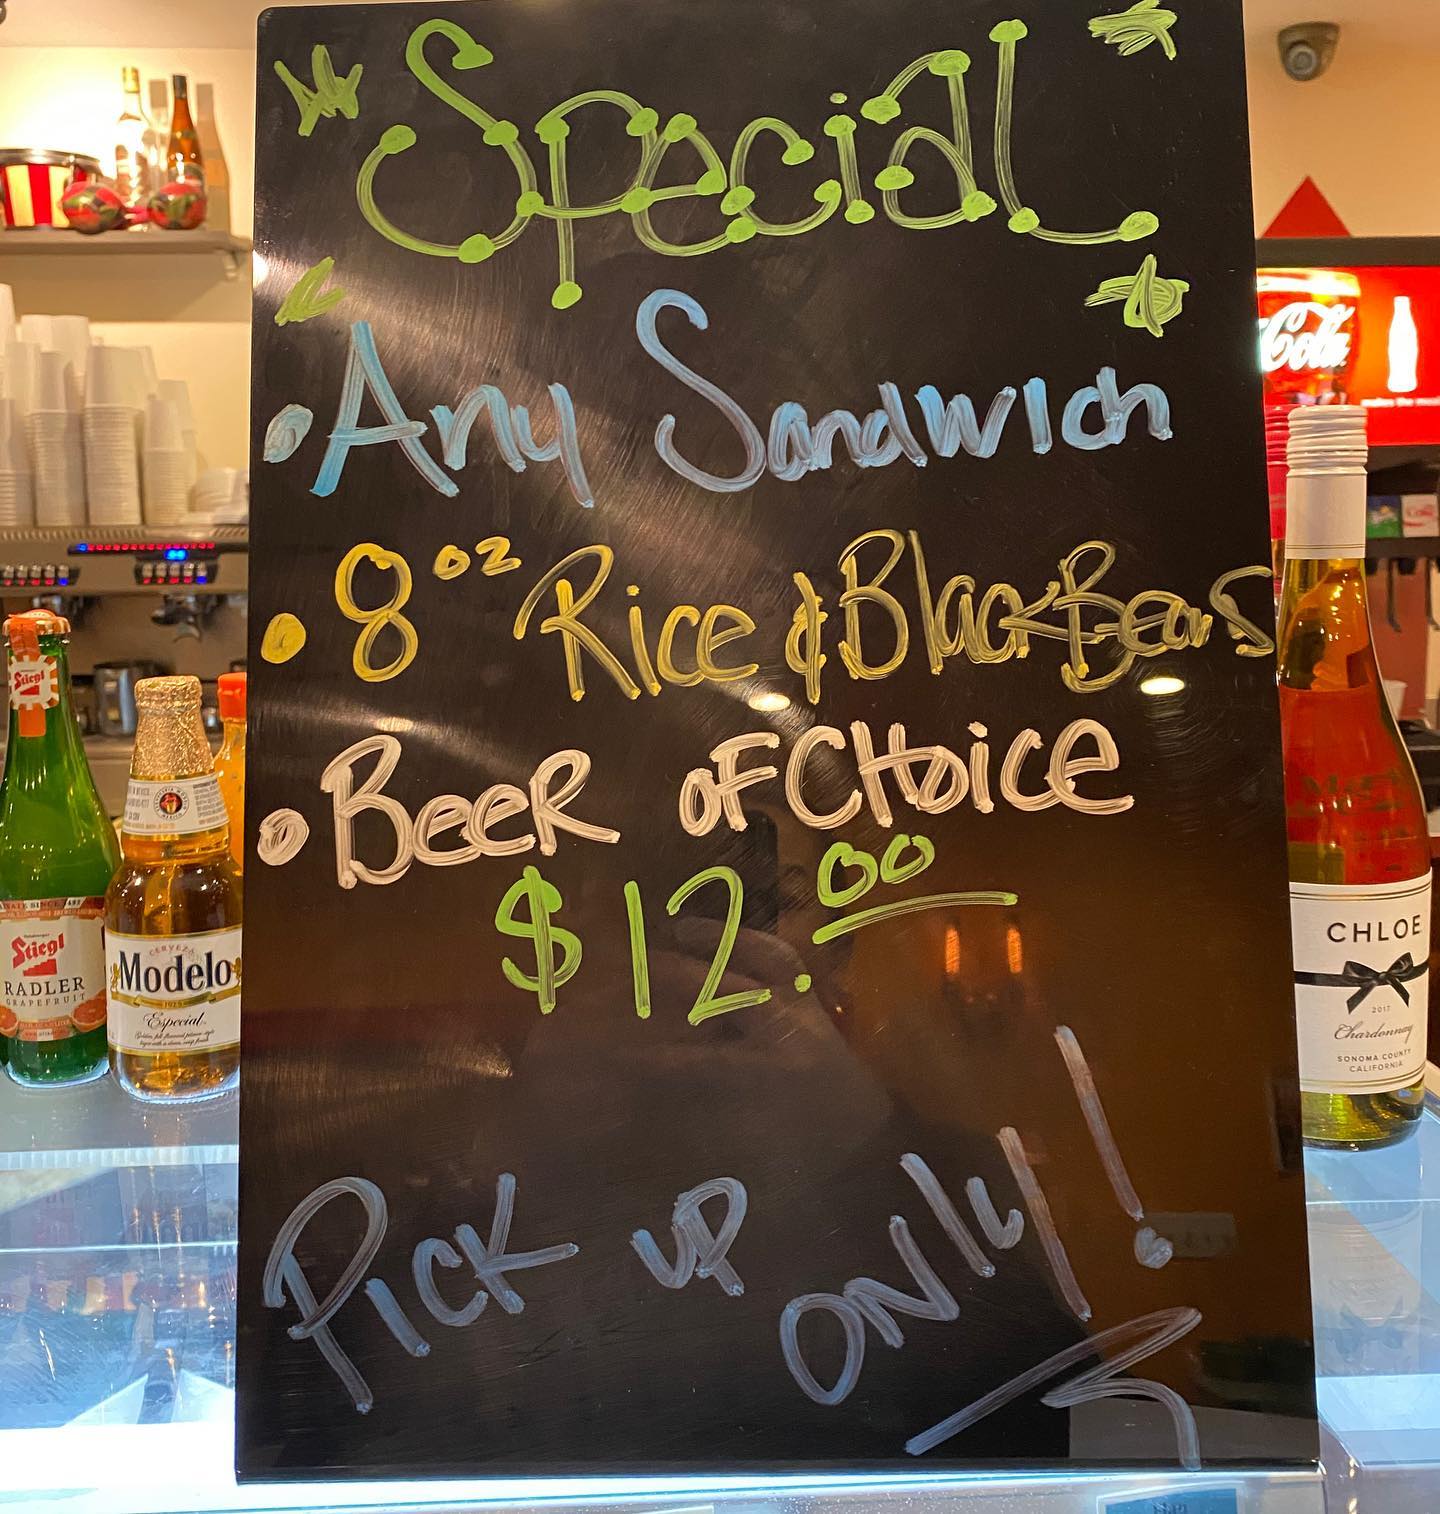 Special
• Any Sandwich
• 8 oz Rice & Black Beans
• Beer of Choice
$12.00
Pick up only!
Stiegl
Stiegl
RADLER
GRAPEFRUIT
CERVEZA
Modelo
Especial
Cola
CHLOE
2017
Chardonnay
SONOMA COUNTY
CALIFORNIA